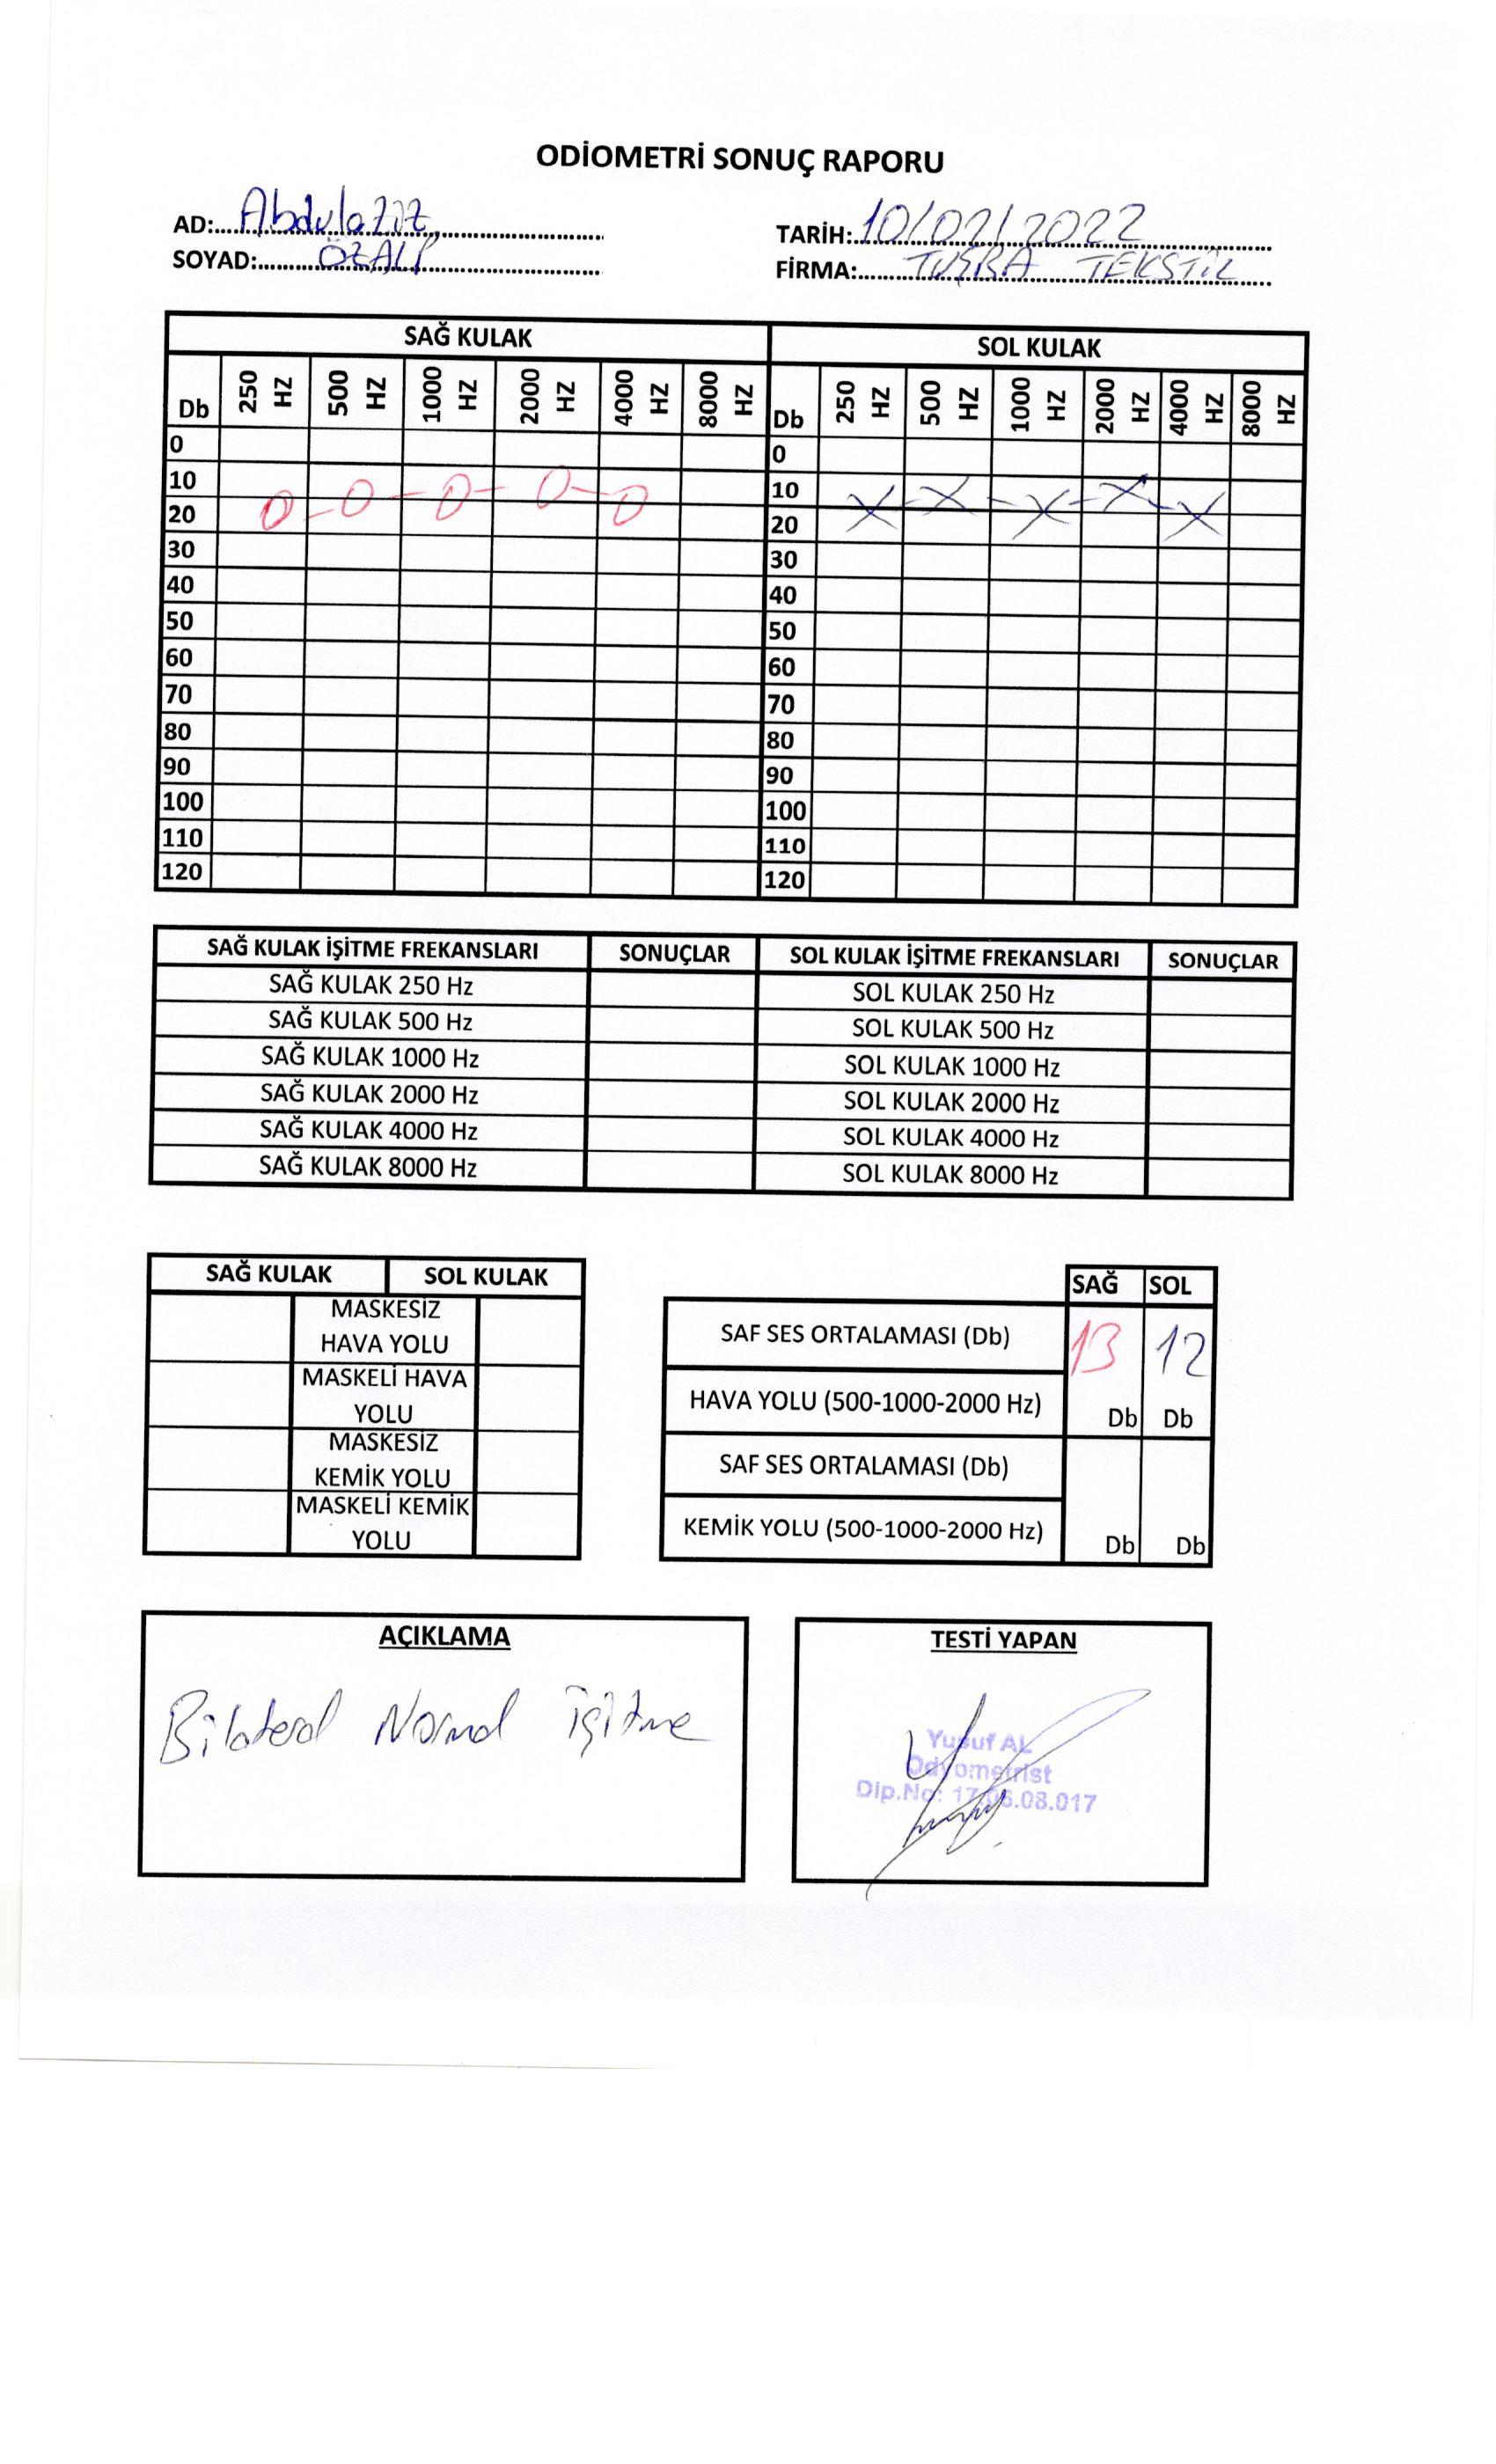 ODİOMETRİ SONUÇ RAPORU
AD: Abdulaziz
SOYAD: ÖZALP
TARİH: 10/02/2022
FİRMA: TUĞRA TEKSTİL
SAĞ KULAK SOL KULAK
Db 250 HZ 500 HZ 1000 HZ 2000 HZ 4000 HZ 8000 HZ Db 250 HZ 500 HZ 1000 HZ 2000 HZ 4000 HZ 8000 HZ
0 0
10 10
20 20
30 30
40 40
50 50
60 60
70 70
80 80
90 90
100 100
110 110
120 120
SAĞ KULAK İŞİTME FREKANSLARI SONUÇLAR SOL KULAK İŞİTME FREKANSLARI SONUÇLAR
SAĞ KULAK 250 Hz SOL KULAK 250 Hz
SAĞ KULAK 500 Hz SOL KULAK 500 Hz
SAĞ KULAK 1000 Hz SOL KULAK 1000 Hz
SAĞ KULAK 2000 Hz SOL KULAK 2000 Hz
SAĞ KULAK 4000 Hz SOL KULAK 4000 Hz
SAĞ KULAK 8000 Hz SOL KULAK 8000 Hz
SAĞ KULAK SOL KULAK
MASKESİZ
HAVA YOLU
MASKELİ HAVA
YOLU
MASKESİZ
KEMİK YOLU
MASKELİ KEMİK
YOLU
SAĞ SOL
SAF SES ORTALAMASI (Db) 13 12
HAVA YOLU (500-1000-2000 Hz) Db Db
SAF SES ORTALAMASI (Db)
KEMİK YOLU (500-1000-2000 Hz) Db Db
AÇIKLAMA
Bilateral Normal işitme
TESTİ YAPAN
Yusuf AL
Odyometrist
Dip.No: 17.06.08.017